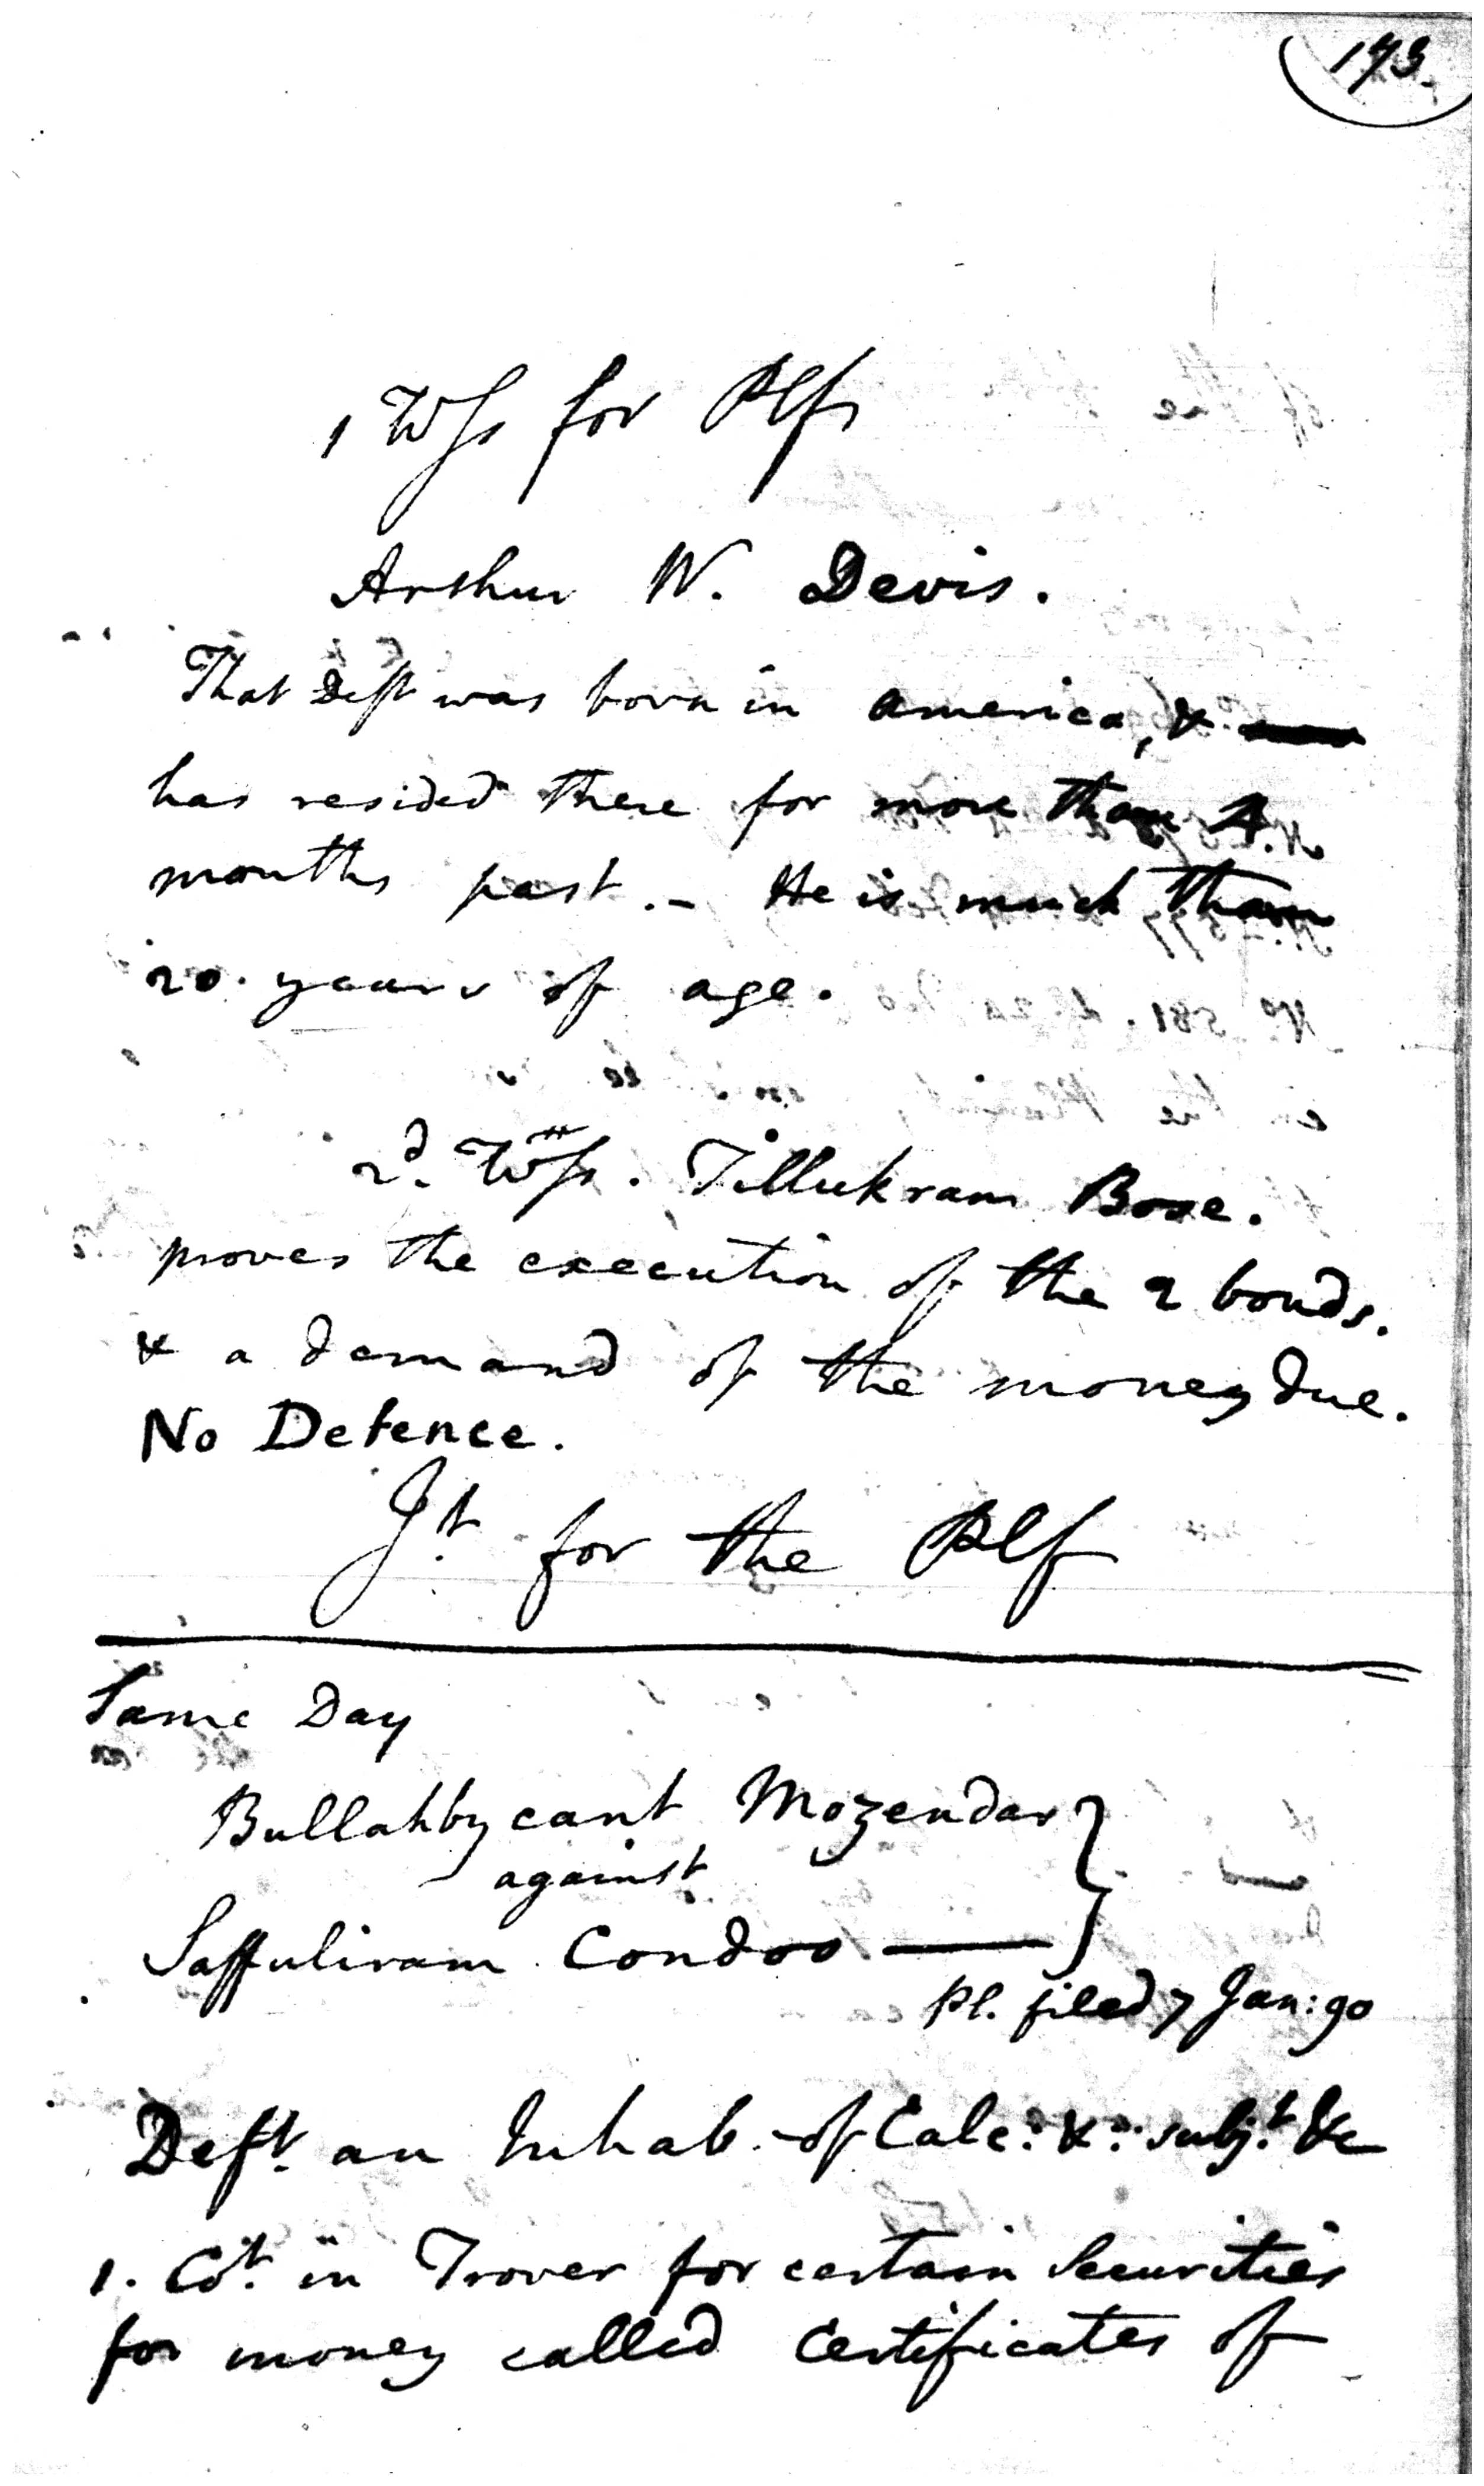 173.
1 Wss for Plf
Arthur W. Devis.
That Deft was born in america, &
has resided there for more than 4
months past. - He is much than
20. years of age.
2d. Wss. Tillukram Bose.
proves the execution of the 2 bonds.
& a demand of the money due.
No Defence.
Jt. for the Plf
Same Day
Bullahby cant Mozendar
against
Saffuliram Condoo
Pl. filed 7 Jan: 90
Deft. an Inhab. of Calc: &: subj.t &c
1. Cot. in Trover for certain Securities
for money called Certificates of